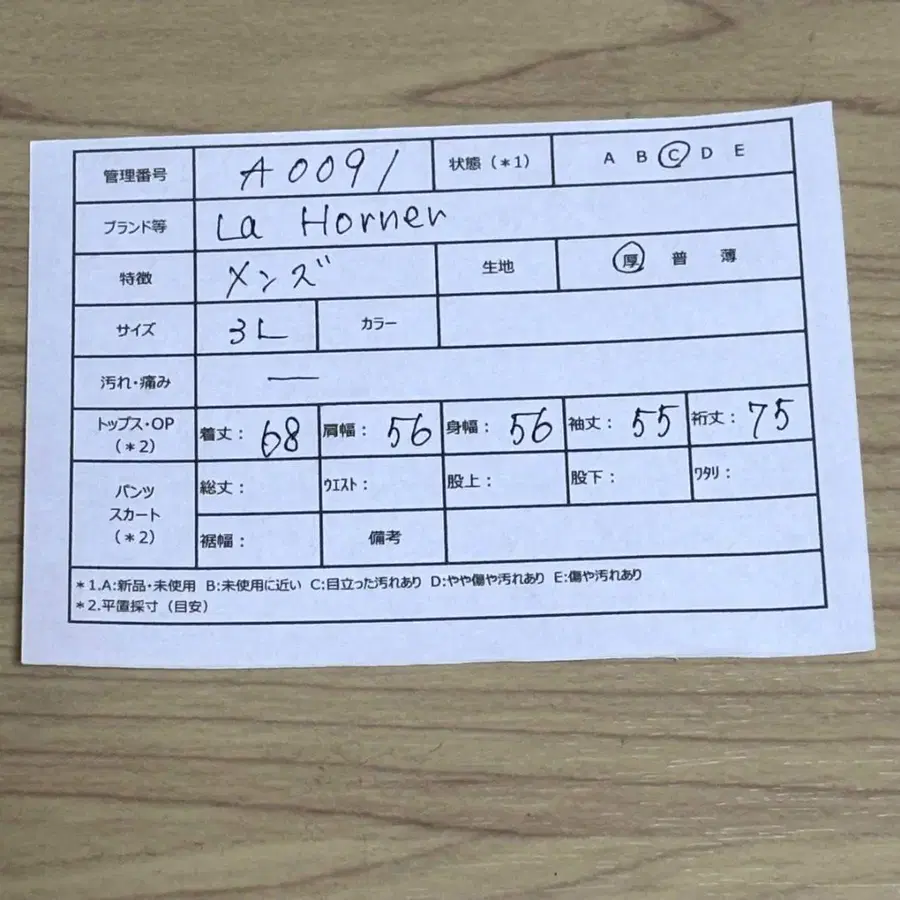 管理番号 A0091 状態(*1) A B C D E
ブランド等 La Horner
特徴 メンズ 生地 厚 普 薄
サイズ 3L カラー
汚れ・痛み ー
トップス・OP (*2) 着丈: 68 肩幅: 56 身幅: 56 袖丈: 55 裄丈: 75
パンツ スカート (*2) 総丈: ウエスト: 股上: 股下: ワタリ:
裾幅: 備考
*1.A:新品・未使用 B:未使用に近い C:目立った汚れあり D:やや傷や汚れあり E:傷や汚れあり
*2.平置採寸(目安)